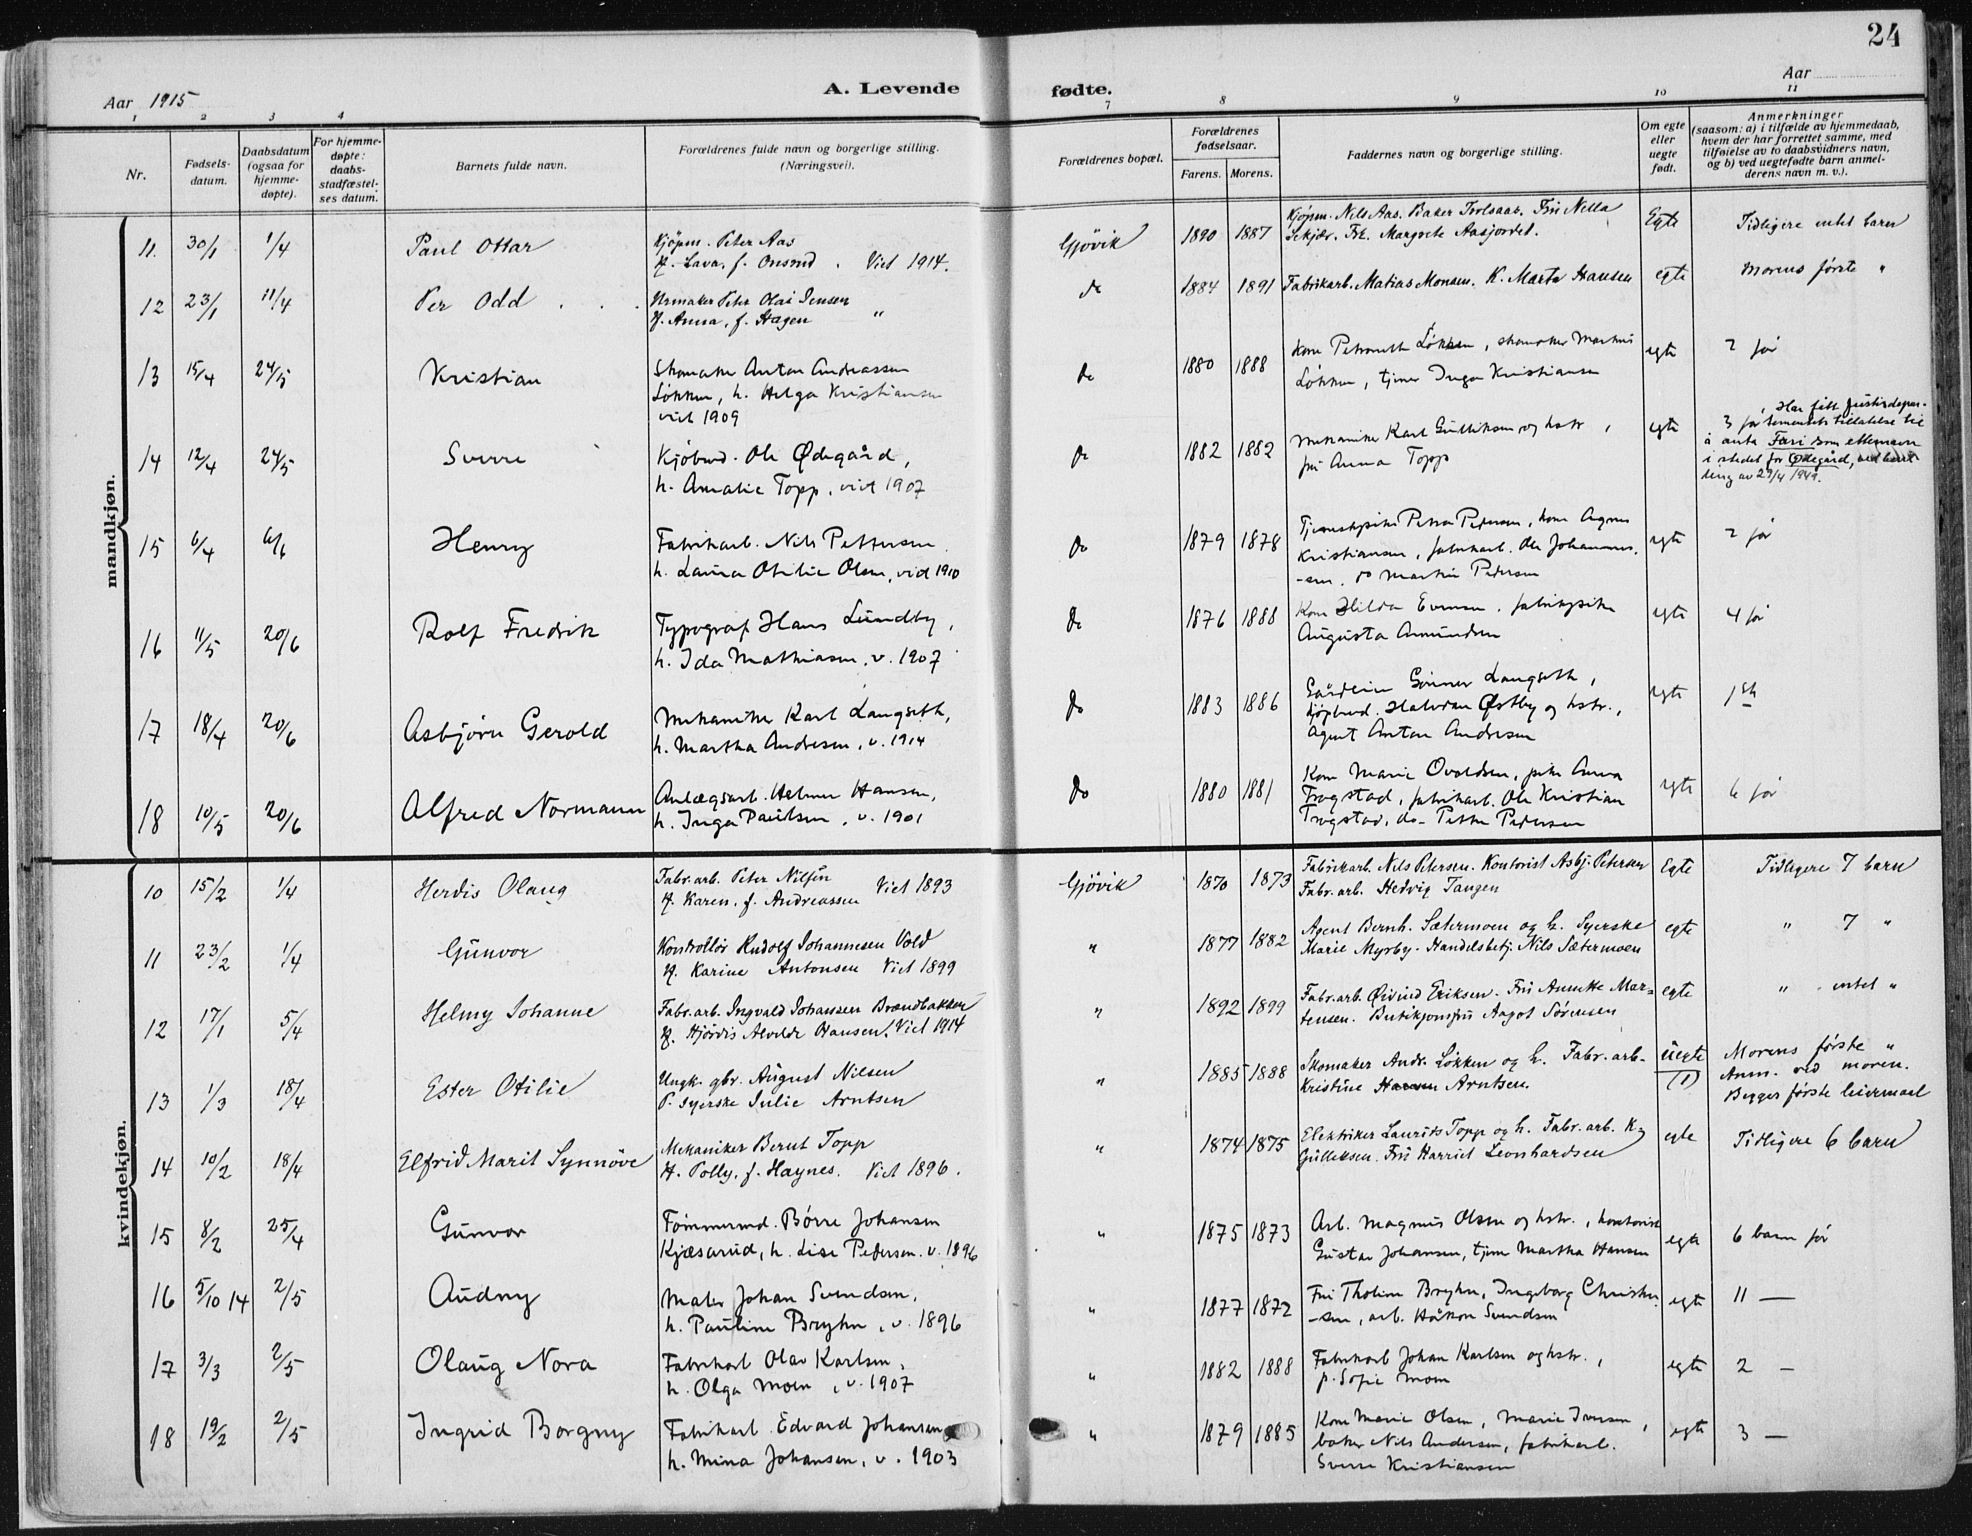 24
Aar 1915
A. Levende fødte.
Aar
1 2 3 4 7 8 9 10 11
Nr.
Fødsels-
datum.
Daabsdatum
(ogsaa for
hjemme-
døpte).
For hjemme-
døpte:
daabs-
stadfæstel-
ses datum.
Barnets fulde navn.
Forældrenes fulde navn og borgerlige stilling.
(Næringsvei).
Forældrenes bopæl.
Forældrenes
fødselsaar.
Farens. Morens.
Faddernes navn og borgerlige stilling.
Om egte
eller
uegte
født.
Anmerkninger
(saasom: a) i tilfælde av hjemmedaab,
hvem der har forrettet samme, med
tilføielse av to daabsvidners navn,
og b) ved uegtefødte barn anmel-
derens navn m. v.).
mandkjøn.
11. 30/1 1/4 Paul Ottar
Kjöpm. Peter Aas
H. Lava, f. Onsrud. Viet 1914.
Gjövik 1890 1887
Kjöpm. Nils Aas. Baker Fru Nella
Frk. Margrete Aasjordet.
Egte Tidligere intet barn
12 23/1 11/4 Per Odd
Urmaker Peter Olai Jensen
H. Anna, f. Hagen "
do 1884 1891 Fabrikarb. Matias Monsen. K. Marta Hansen egte Morens første "
13 15/4 24/5 Kristian
Skomaker Anton Andreassen
Løkken, h. Helga Kristiansen
viet 1909
do 1880 1888
Kone Løkken, skomaker Markus
Løkken, tjener Inga Kristiansen
egte 2 før
14 12/4 24/5 Sverre
Kjøbmd. Ole Ødegård,
h. Amalie Topp, viet 1907
do 1882 1882
Mekaniker Karl Gulliksen og hstr,
fru Anna Topp
egte 3 før
, Har fått justisdepar-
tementets tillatelse til
å anta Fari som etternavn
i stedet for Ødegård,
av 29/4 1949.
15 6/4 6/6 Henry
Fabrikarb. Nils Pettersen
h. Laura Otilie Olsen, vid 1910
do 1879 1878
Tjenestepike Petra Pedersen, kone Agnes
Kristiansen, fabrikarb. Ole Johannes-
-sen, do Martin Pedersen
egte 2 før
16 11/5 20/6 Rolf Fredrik
Typograf Hans Lundby,
h. Ida Mathiasen, v. 1907
do 1876 1888
Kone Hilda Evensen, fabrikpike
Augusta Amundsen
egte 4 før
17 18/4 20/6 Asbjørn Gerold
Mekaniker Karl Langseth,
h. Martha Andresen, v. 1914
do 1883 1886
Gunner Langseth,
kjøpmd. Halvdan Østby og hstr.,
Agent Anton Andresen
egte 1ste
18 10/5 20/6 Alfred Normann
Anlægsarb. Helmer Hansen,
h. Inga Paulsen, v. 1901
do 1880 1881
Kone Marie Ovaldsen, pike Anna
Trogstad, fabrikarb. Ole Kristian
Trogstad, do- Petter Pedersen
egte 6 før
kvindekjøn.
10 15/2 1/4 Herdis Olaug
Fabr.arb. Peter Nilsen Viet 1893
H. Karen, f. Andreassen
Gjövik 1870 1873
Fabrikarb. Nils Petersen. Kontorist Asbj. Petersen
Fabr.arb. Hedvig Tangen
Egte Tidligere 7 barn
11 23/2 1/4 Gunvor
Kontrollör Rudolf Johannesen Vold
H. Karine Antonsen Viet 1899
" 1877 1882
Agent Bernh. Sætermoen og h. Syerske
Marie Myrby. Handelsbetj. Nils Sætermoen
egte " 7 "
12 17/1 5/4 Helmy Johanne
Fabr.arb. Ingvald Johansen Brændbakken
H. Hjördis Alvilde Hansen. Viet 1914
" 1892 1899
Fabr.arb. Øivind Eriksen. Fru Annette Mar-
tensen. Butikjomfru Aagot Sörensen
egte " intet "
13 1/3 18/4 Ester Otilie
Ungk. gbr. August Nilsen
P. syerske Julie Arntsen
" 1885 1888
Skomaker Andr. Løkken og h. Fabr.arb.
Kristine Arntsen.
Uegte
(1)
Morens første "
Anm. ved moren.
Begges første leiermaal
14 10/2 18/4 Elfrid Marit Synnöve
Mekaniker Bernt Topp
H. Polly, f. Haynes. Viet 1896.
" 1874 1875
Elektriker Laurits Topp og h. Fabr.arb. K.
Gulliksen. Fru Harriet Leonhardsen
egte Tidligere 6 barn
15 8/2 25/4 Gunvor
Tømmermd. Børre Johansen
Kjæsarud, h. Lise Pedersen. v. 1896
" 1875 1873
Arb. Magnus Olsen og hstr., kontorist
Gustav Johansen, tjen Martha Hansen
egte 6 barn før
16 5/10 14 2/5 Audny
Maler Johan Svendsen,
h. Pauline Bryhn, v. 1896
" 1877 1872
Fru Tholine Bryhn, Ingeborg Christen-
-sen, arb. Håkon Svendsen
egte 11 —
17 3/3 2/5 Olaug Nora
Fabrikarb Olav Karlsen,
h. Olga Moen, v. 1907
" 1882 1888
Fabrikarb Johan Karlsen og hstr.,
p. Sofie Moen
egte 2 —
18 19/2 2/5 Ingrid Borgny
Fabrikarb. Edvard Johansen
h. Mina Johansen, v. 1903
" 1879 1885
Kone Marie Olsen, Marie Iversen,
baker Nils Andersen, fabrikarb.
Sverre Kristiansen
egte 3 —